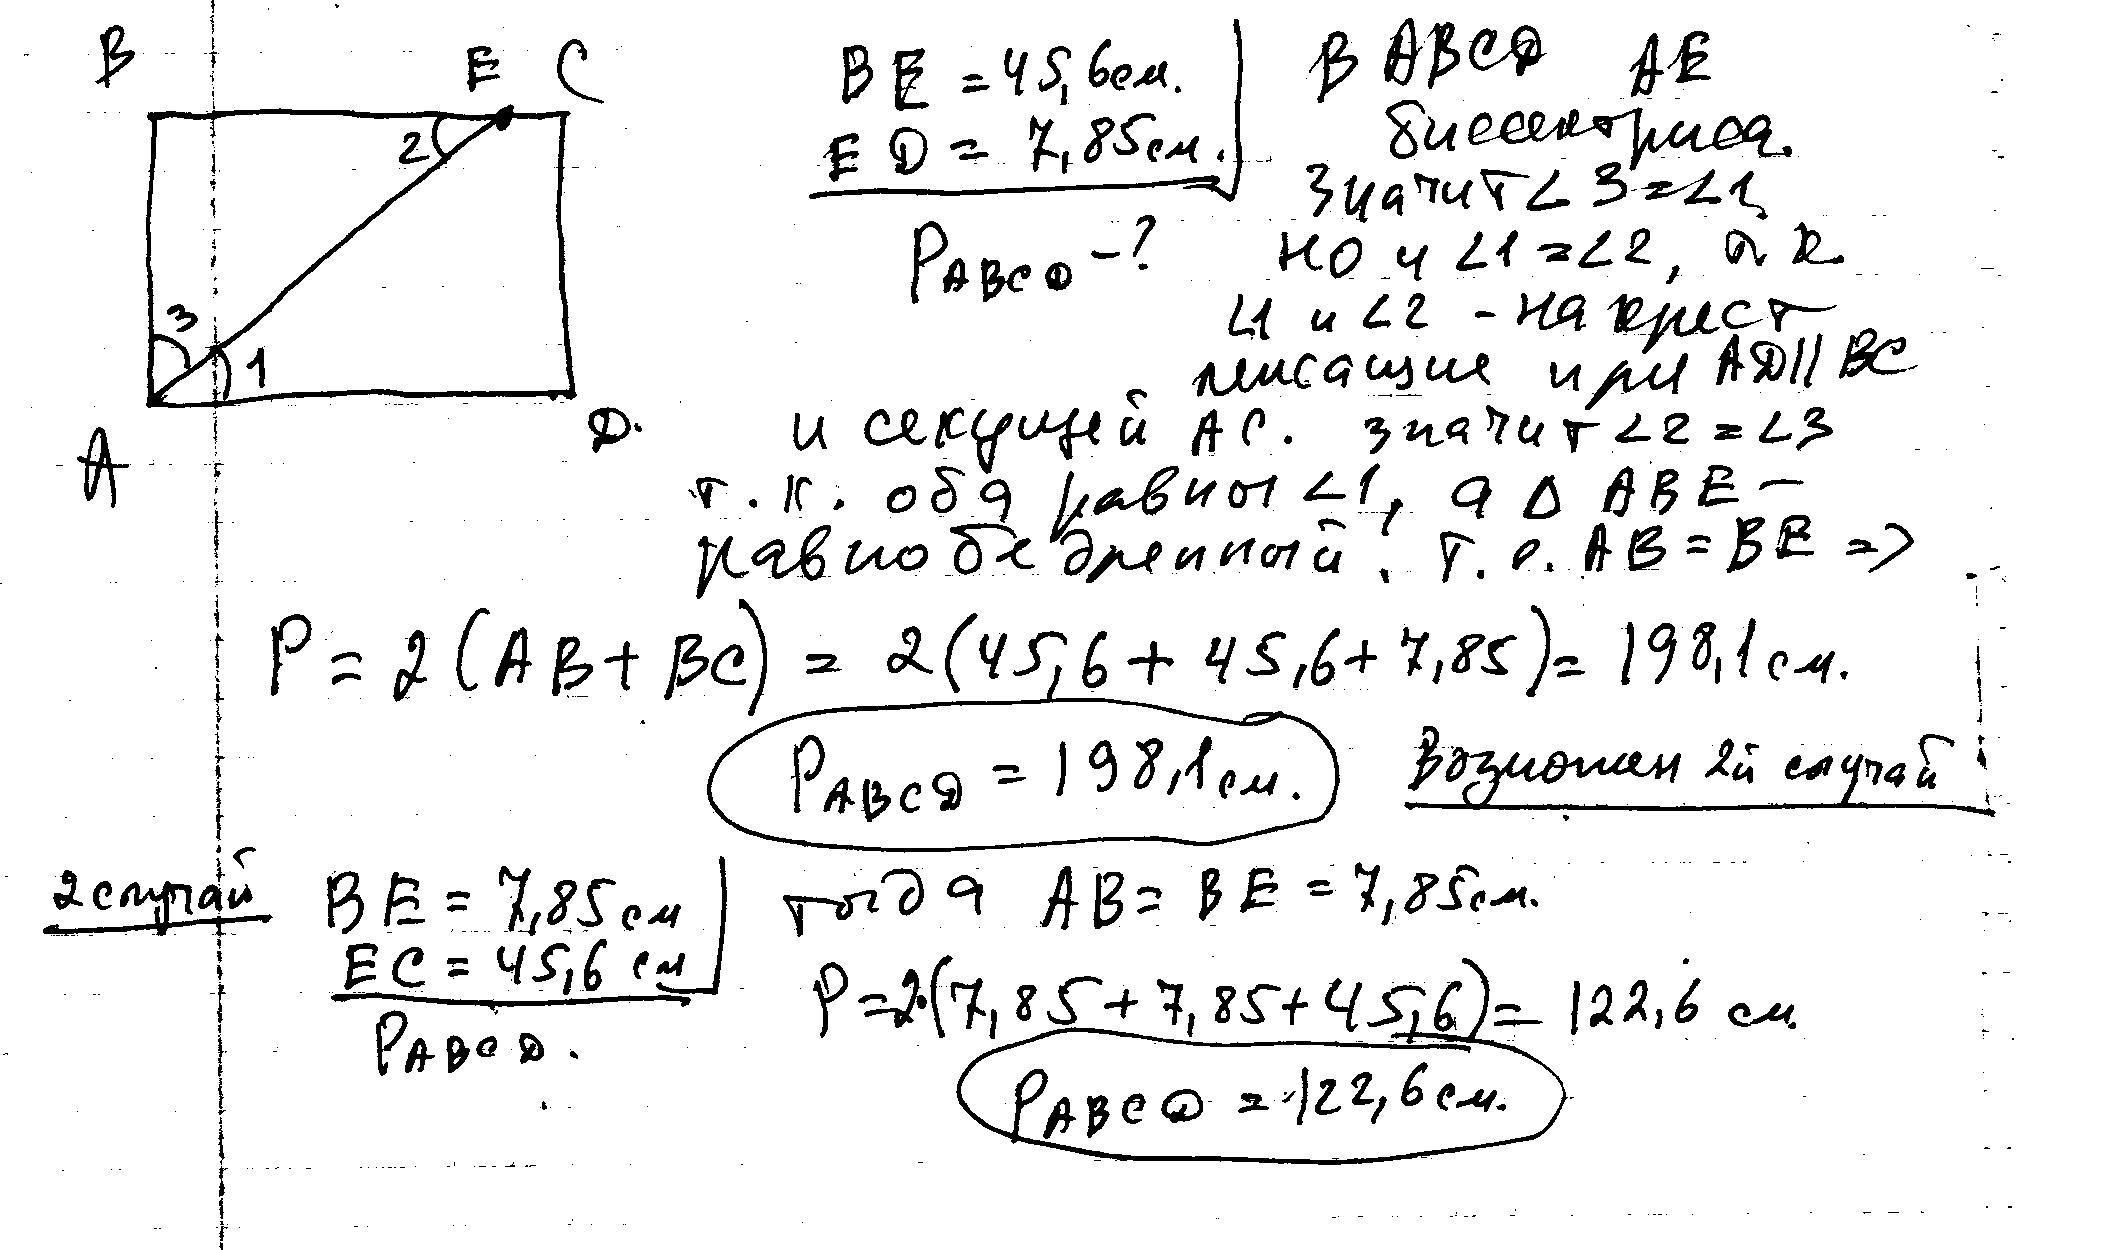 B E C
2
3
1
A D.
BE = 45,6 см.
ED = 7,85 см.
P ABCD - ?
В ABCD AE
биссектриса.
Значит ∠3 = ∠1,
но и ∠1 = ∠2, т к.
∠1 и ∠2 - накрест
лежащие при AD || BC
и секущей AC. значит ∠2 = ∠3
т. к. оба равны ∠1, а Δ ABE -
равнобедренный, т. е. AB = BE =>
P = 2 (AB + BC) = 2 (45,6 + 45,6 + 7,85) = 198,1 см.
P ABCD = 198,1 см.
Возможен 2й случай
2 случай
BE = 7,85 см
EC = 45,6 см
P ABCD.
тогда AB = BE = 7,85 см.
P = 2·(7,85 + 7,85 + 45,6) = 122,6 см.
P ABCD = 122,6 см.